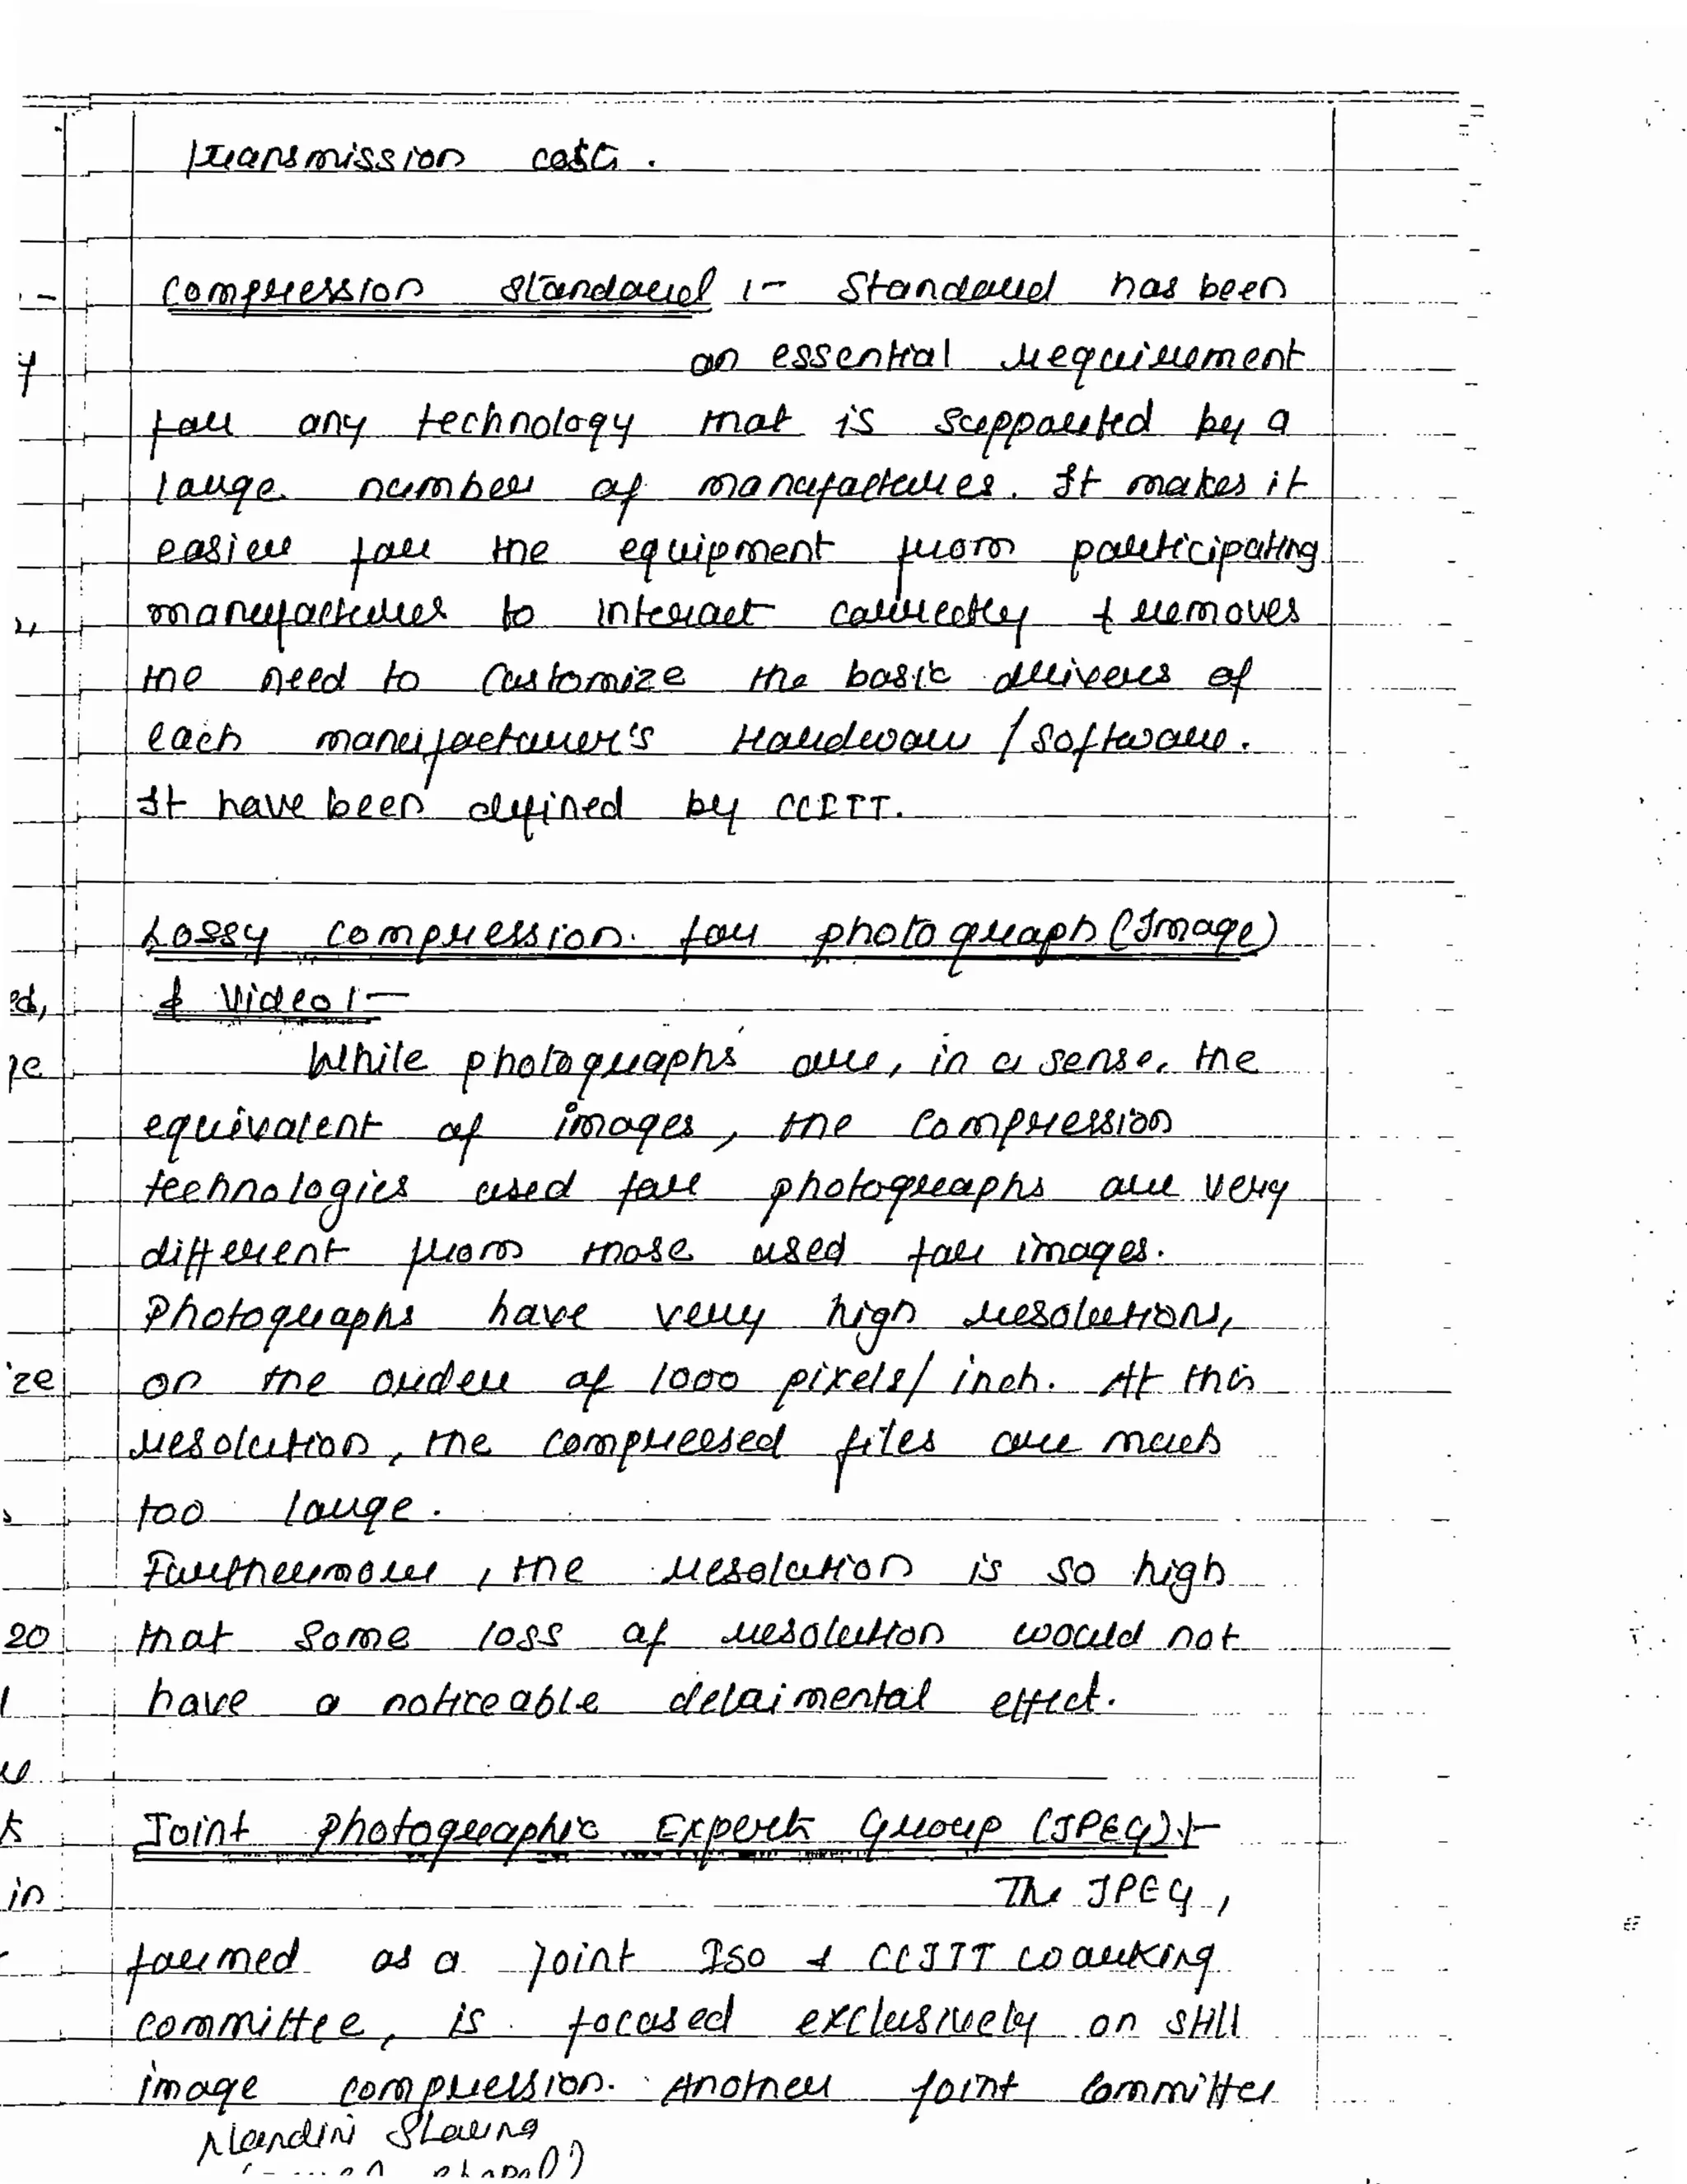 transmission costs.
Compression Standard :- Standard has been
:-
an essential requirement
y
for any technology that is supported by a
large number of manufactures. It makes it
easier for the equipment from participating
manufactures to interact correctly & removes
the need to Customize the basic drivers of
each manufacturer's Hardware / Software.
It have been defined by CCITT.
Lossy compression. for photograph (Image)
ed,
& Video :-
While photographs are, in a sense, the
equivalent of images, the Compression
technologies used for photographs are very
different from those used for images.
Photographs have very high resolutions,
ize
on the order of 1000 pixels/ inch. At this
resolution, the compressed files are much
too large.
Furthermore, the resolution is so high
20
that some loss of resolution would not
have a noticeable detrimental effect.
Joint Photographic Experts Group (JPEG) :-
in
The JPEG,
formed as a joint ISO & CCITT working
committee, is focused exclusively on still
image compression. Another joint Committee
Nandini